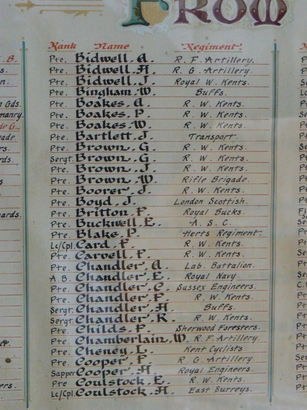 FROM
Rank Name Regiment.
Pte. Bidwell. A. R. F. Artillery.
Pte. Bidwell. H. R. G. Artillery
Pte. Bidwell. J. Royal W. Kents.
Pte. Bingham. W. Buffs.
Pte. Boakes. A. R. W. Kents.
Pte. Boakes. P. R. W. Kents.
Pte. Boakes. W. R. W. Kents.
Pte. Bartlett. J. Transport.
Pte. Brown. G. R. W. Kents.
Sergt. Brown. G. R. W. Kents.
Pte. Brown. J. R. W. Kents.
Pte. Brown. W. Rifle Brigade.
Pte. Boorer. J. R. W. Kents.
Pte. Boyd. J. London Scottish.
Pte. Britton. F. Royal Bucks.
Pte. Buckwell. E. A. S. C.
Pte. Blake. P. Herts Regiment.
Lc/Cpl. Card. F. R. W. Kents.
Pte. Carvell. F. R. W. Kents.
Pte. Chandler. A. Lab. Battalion.
A.B. Chandler. E. Royal Navy.
Pte. Chandler. C. Sussex Engineers.
Pte. Chandler. F. R. W. Kents.
Sergt. Chandler. H. Buffs.
Sergt. Chandler. R. R. W. Kents.
Pte. Childs. F. Sherwood Foresters.
Pte. Chamberlain. W. R. F. Artillery
Pte. Chesney. L. Kent Cyclists
Pte. Cooper. F. R. G. Artillery
Sapper Cooper. H. Royal Engineers.
Pte. Coulstock. E. R. W. Kents.
Lc/Cpl. Coulstock. H. East Surreys.